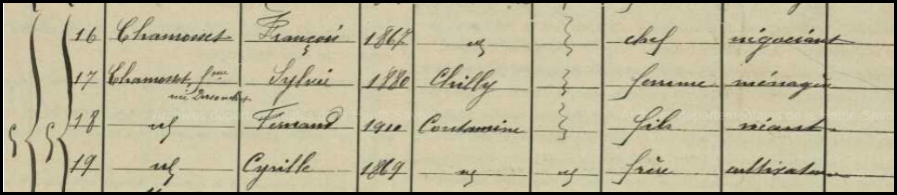 16 Chamosset François 1867 id chef négociant
17 Chamosset, fme Sylvie 1880 Chilly femme ménagère
née
18 id Fernand 1910 Contamine fils néant
19 id Cyrille 1869 id id frère cultivateur